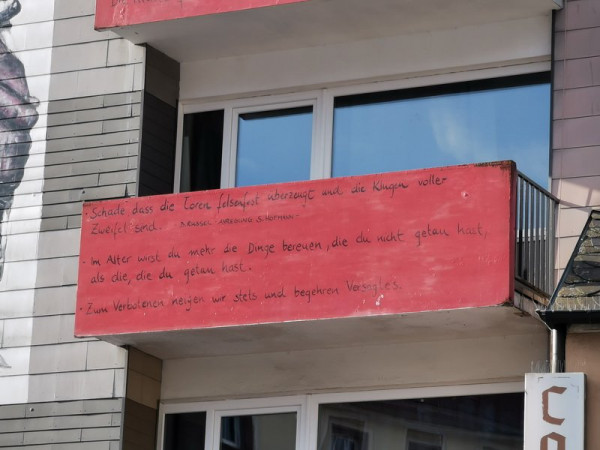 · Schade, dass die Toren felsenfest überzeugt und die Klugen voller
Zweifel sind.
· Im Alter wirst du mehr die Dinge bereuen, die du nicht getan hast,
als die, die du getan hast.
· Zum Verbotenen neigen wir stets und begehren Versagtes.